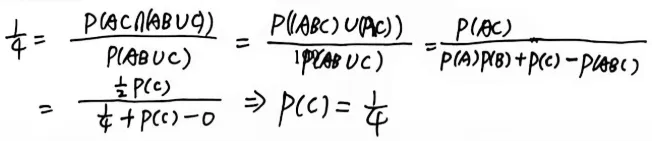 1/4 = P(AC∩(ABUC)) / P(ABUC) = P((ABC)U(AC)) / P(ABUC) = P(AC) / P(A)P(B)+P(C)-P(ABC)
= 1/2 P(C) / 1/4 + P(C) - 0 ⇒ P(C) = 1/4